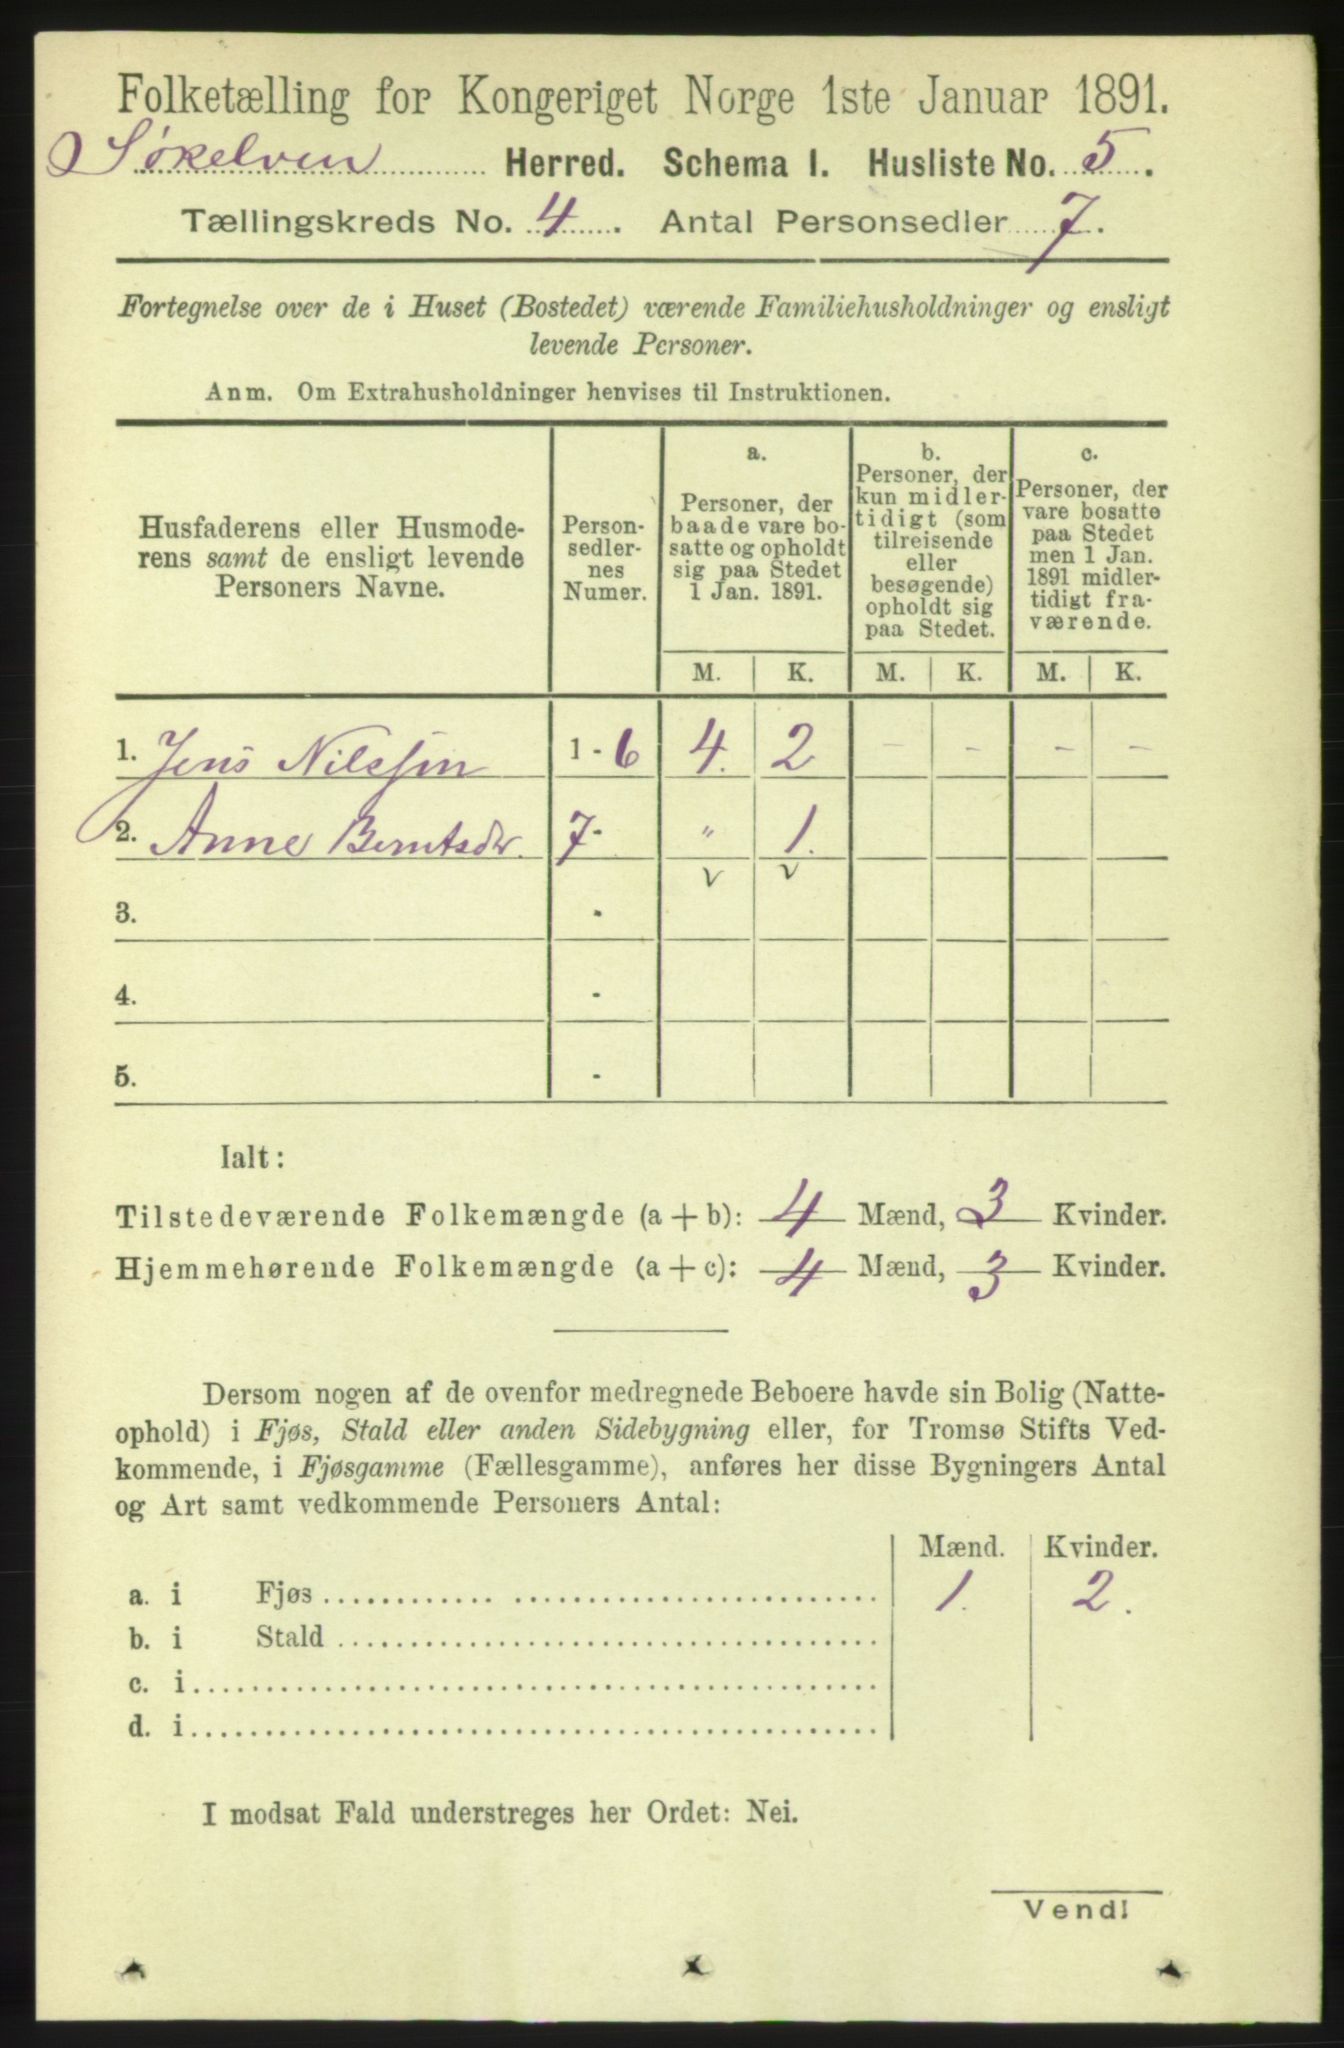 Folketælling for Kongeriget Norge 1ste Januar 1891.
Søkelven Herred. Schema I. Husliste No. 5.
Tællingskreds No. 4. Antal Personsedler 7.
Fortegnelse over de i Huset (Bostedet) værende Familiehusholdninger og ensligt
levende Personer.
Anm. Om Extrahusholdninger henvises til Instruktionen.
Husfaderens eller Husmode-
rens samt de ensligt levende
Personers Navne.
Person-
sedler-
nes
Numer.
a.
Personer, der
baade vare bo-
satte og opholdt
sig paa Stedet
1 Jan. 1891.
b.
Personer, der
kun midler-
tidigt (som
tilreisende
eller
besøgende)
opholdt sig
paa Stedet.
c.
Personer, der
vare bosatte
paa Stedet
men 1 Jan.
1891 midler-
tidigt fra-
værende.
M. K. M. K. M. K.
1. Jens Nilssen 1 - 6 4. 2 - - - -
2. Anne Berntsdtr. 7 - " 1.
v v
3. -
4. -
5. -
Ialt:
Tilstedeværende Folkemængde (a + b): 4 Mænd, 3 Kvinder.
Hjemmehørende Folkemængde (a + c): 4 Mænd, 3 Kvinder.
Dersom nogen af de ovenfor medregnede Beboere havde sin Bolig (Natte-
ophold) i Fjøs, Stald eller anden Sidebygning eller, for Tromsø Stifts Ved-
kommende, i Fjøsgamme (Fællesgamme), anføres her disse Bygningers Antal
og Art samt vedkommende Personers Antal:
Mænd. Kvinder.
a. i Fjøs 1. 2.
b. i Stald
c. i
d. i
I modsat Fald understreges her Ordet: Nei.
Vend!